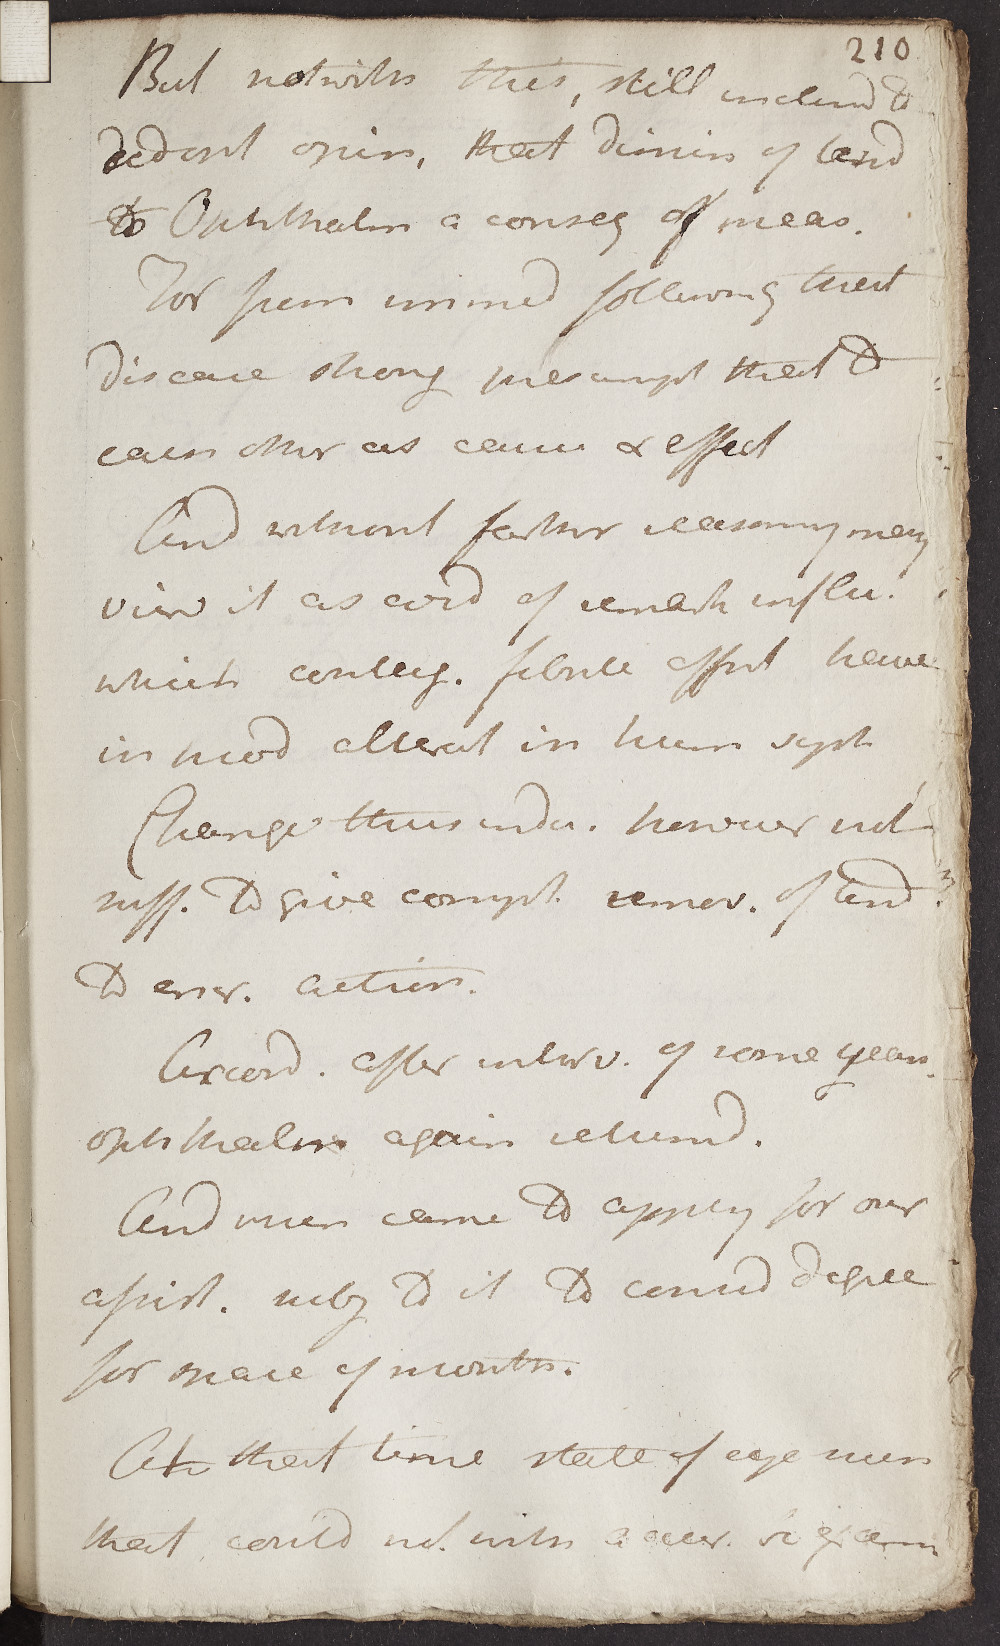 210
But notwiths this, still inclind to
adopt opin, that dimin of tend
to Ophthalm a conseq of meas.
For from immed following that
disease strong presumpt that to
each other as cause & effect
And without farther reasoning may
view it as cond of remark influ.
which contag. febrile affect have
in mod alterat in hum syst
Change thus indu. however not
suff. to give compt. remov. of tend
to action.
Accord. after interv. of some years.
ophthalm again returnd.
And when came to apply for our
assist. subj to it to consid degree
for space of months.
At that time state of eye such
that could not with accur. be exam